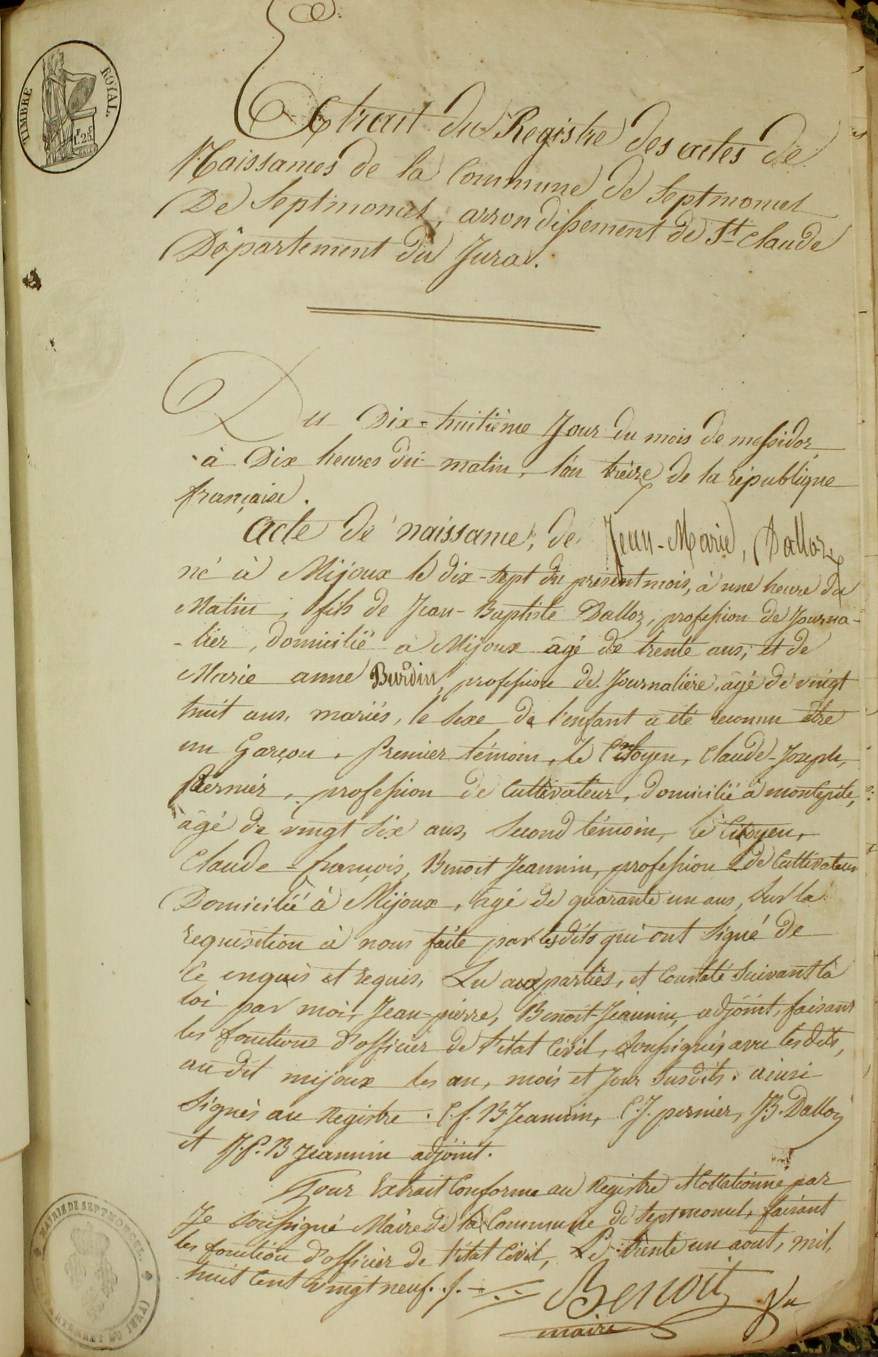 TIMBRE ROYAL.
1f 25c
Extrait du Registre des actes de
Naissances de la Commune de Septmoncel
De Septmoncel, arrondissement de St Claude
Département du Jura.
Du Dix-huitième Jour du mois de messidor
à Dix heures du matin, l'an treize de la république
française.
Acte de naissance, de Jean-Marie, Dalloz,
né à Mijoux le dix-sept du présent mois, à une heure du
Matin, fils de Jean-Baptiste Dalloz, profession de Journa-
-lier, domicilié à Mijoux âgé de trente ans, et de
Marie anne Burdin, profession de Journalière, âgé de vingt
huit ans, mariés, le sexe de l'enfant a été reconnu être
un Garçon, Premier témoin, le Citoyen, Claude-Joseph,
Pernier, profession de Cultivateur, domicilié à montepile,
âgé de vingt six ans, Second témoin, le Citoyen,
Claude-françois, Benoit Jeannin, profession de Cultivateur
Domicilié à Mijoux, âgé de quarante un ans, sur la
requisition à nous faite par lesdits qui ont signé de
ce enquis et requis, Lu aux parties, et Constaté suivant la
loi par moi, Jean-pierre, Benoit-Jeannin, adjoint, faisant
les fonctions d'officier de l'état Civil, soussignés avec les dits,
au dit mijoux les an, mois et Jour susdits. ainsi
signés au Registre. C.f. B Jeannin, C.J. pernier, J.B. Dalloz
et J.P. B Jeannin adjoint.
Pour Extrait Conforme au Registre et Collationné par
Je soussigné Maire de la Commune de Septmoncel, faisant
les fonction d'officier de l'état Civil, Le trente un aout, mil
huit Cent vingt neuf.
Benoit
maire
Vu
MAIRIE DE SEPTMONCEL
(JURA)